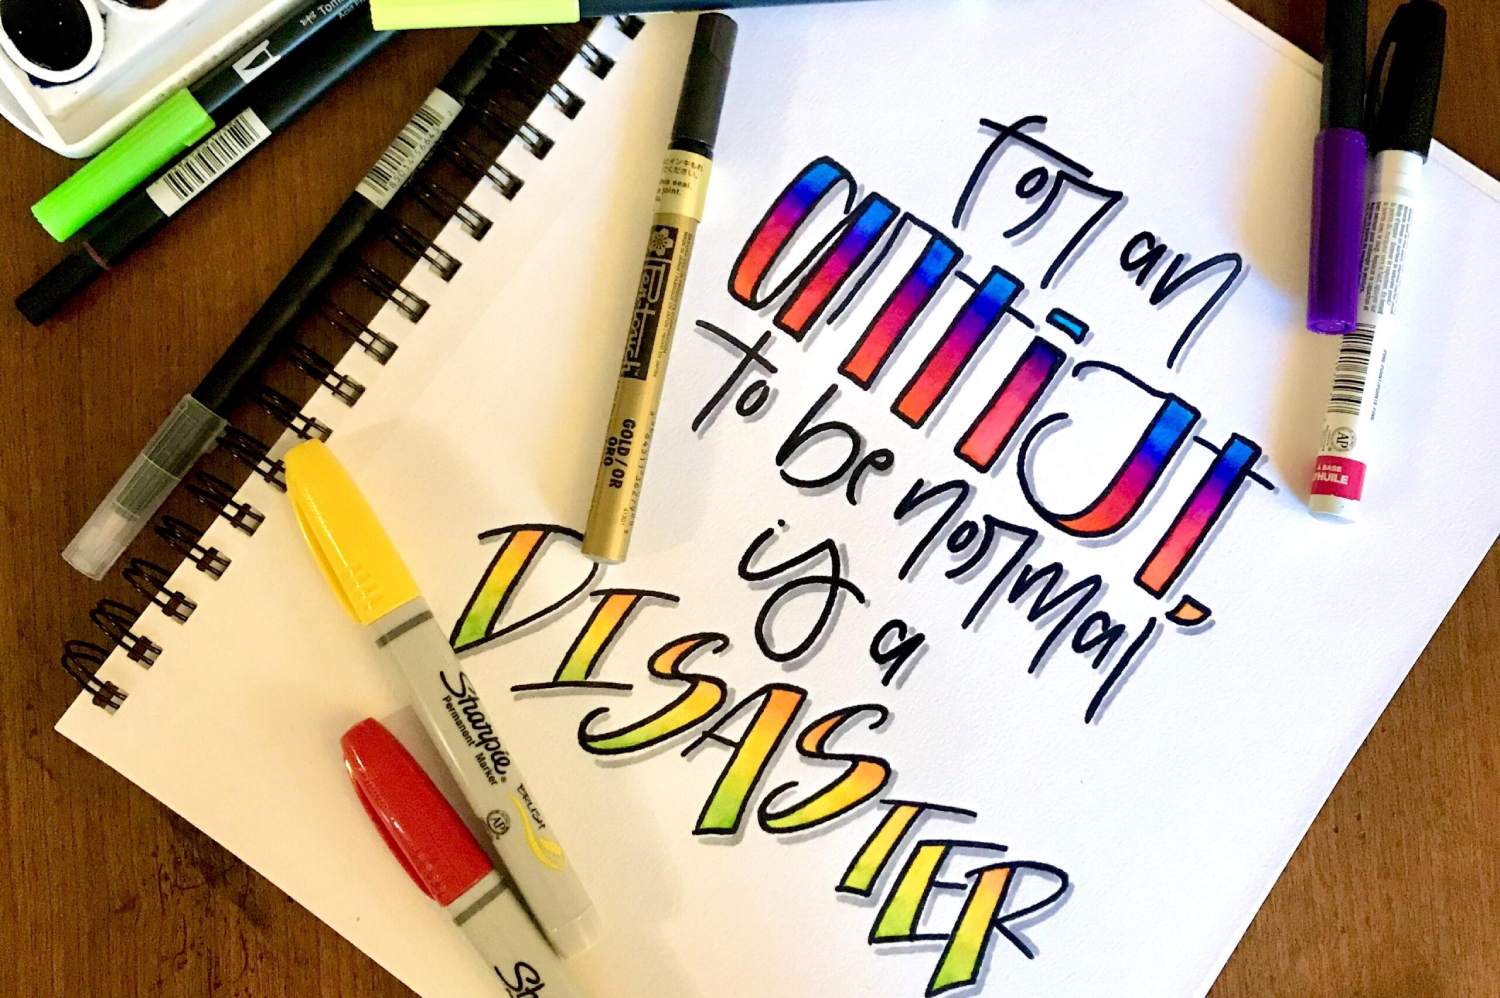 For an
artist,
to be normal
is a
DISASTER
Pen-touch
GOLD / OR
ORO
Sharpie
Permanent Marker
BRUSH
AP
Sharpie
Tom
AP
A BASE
D'HUILE